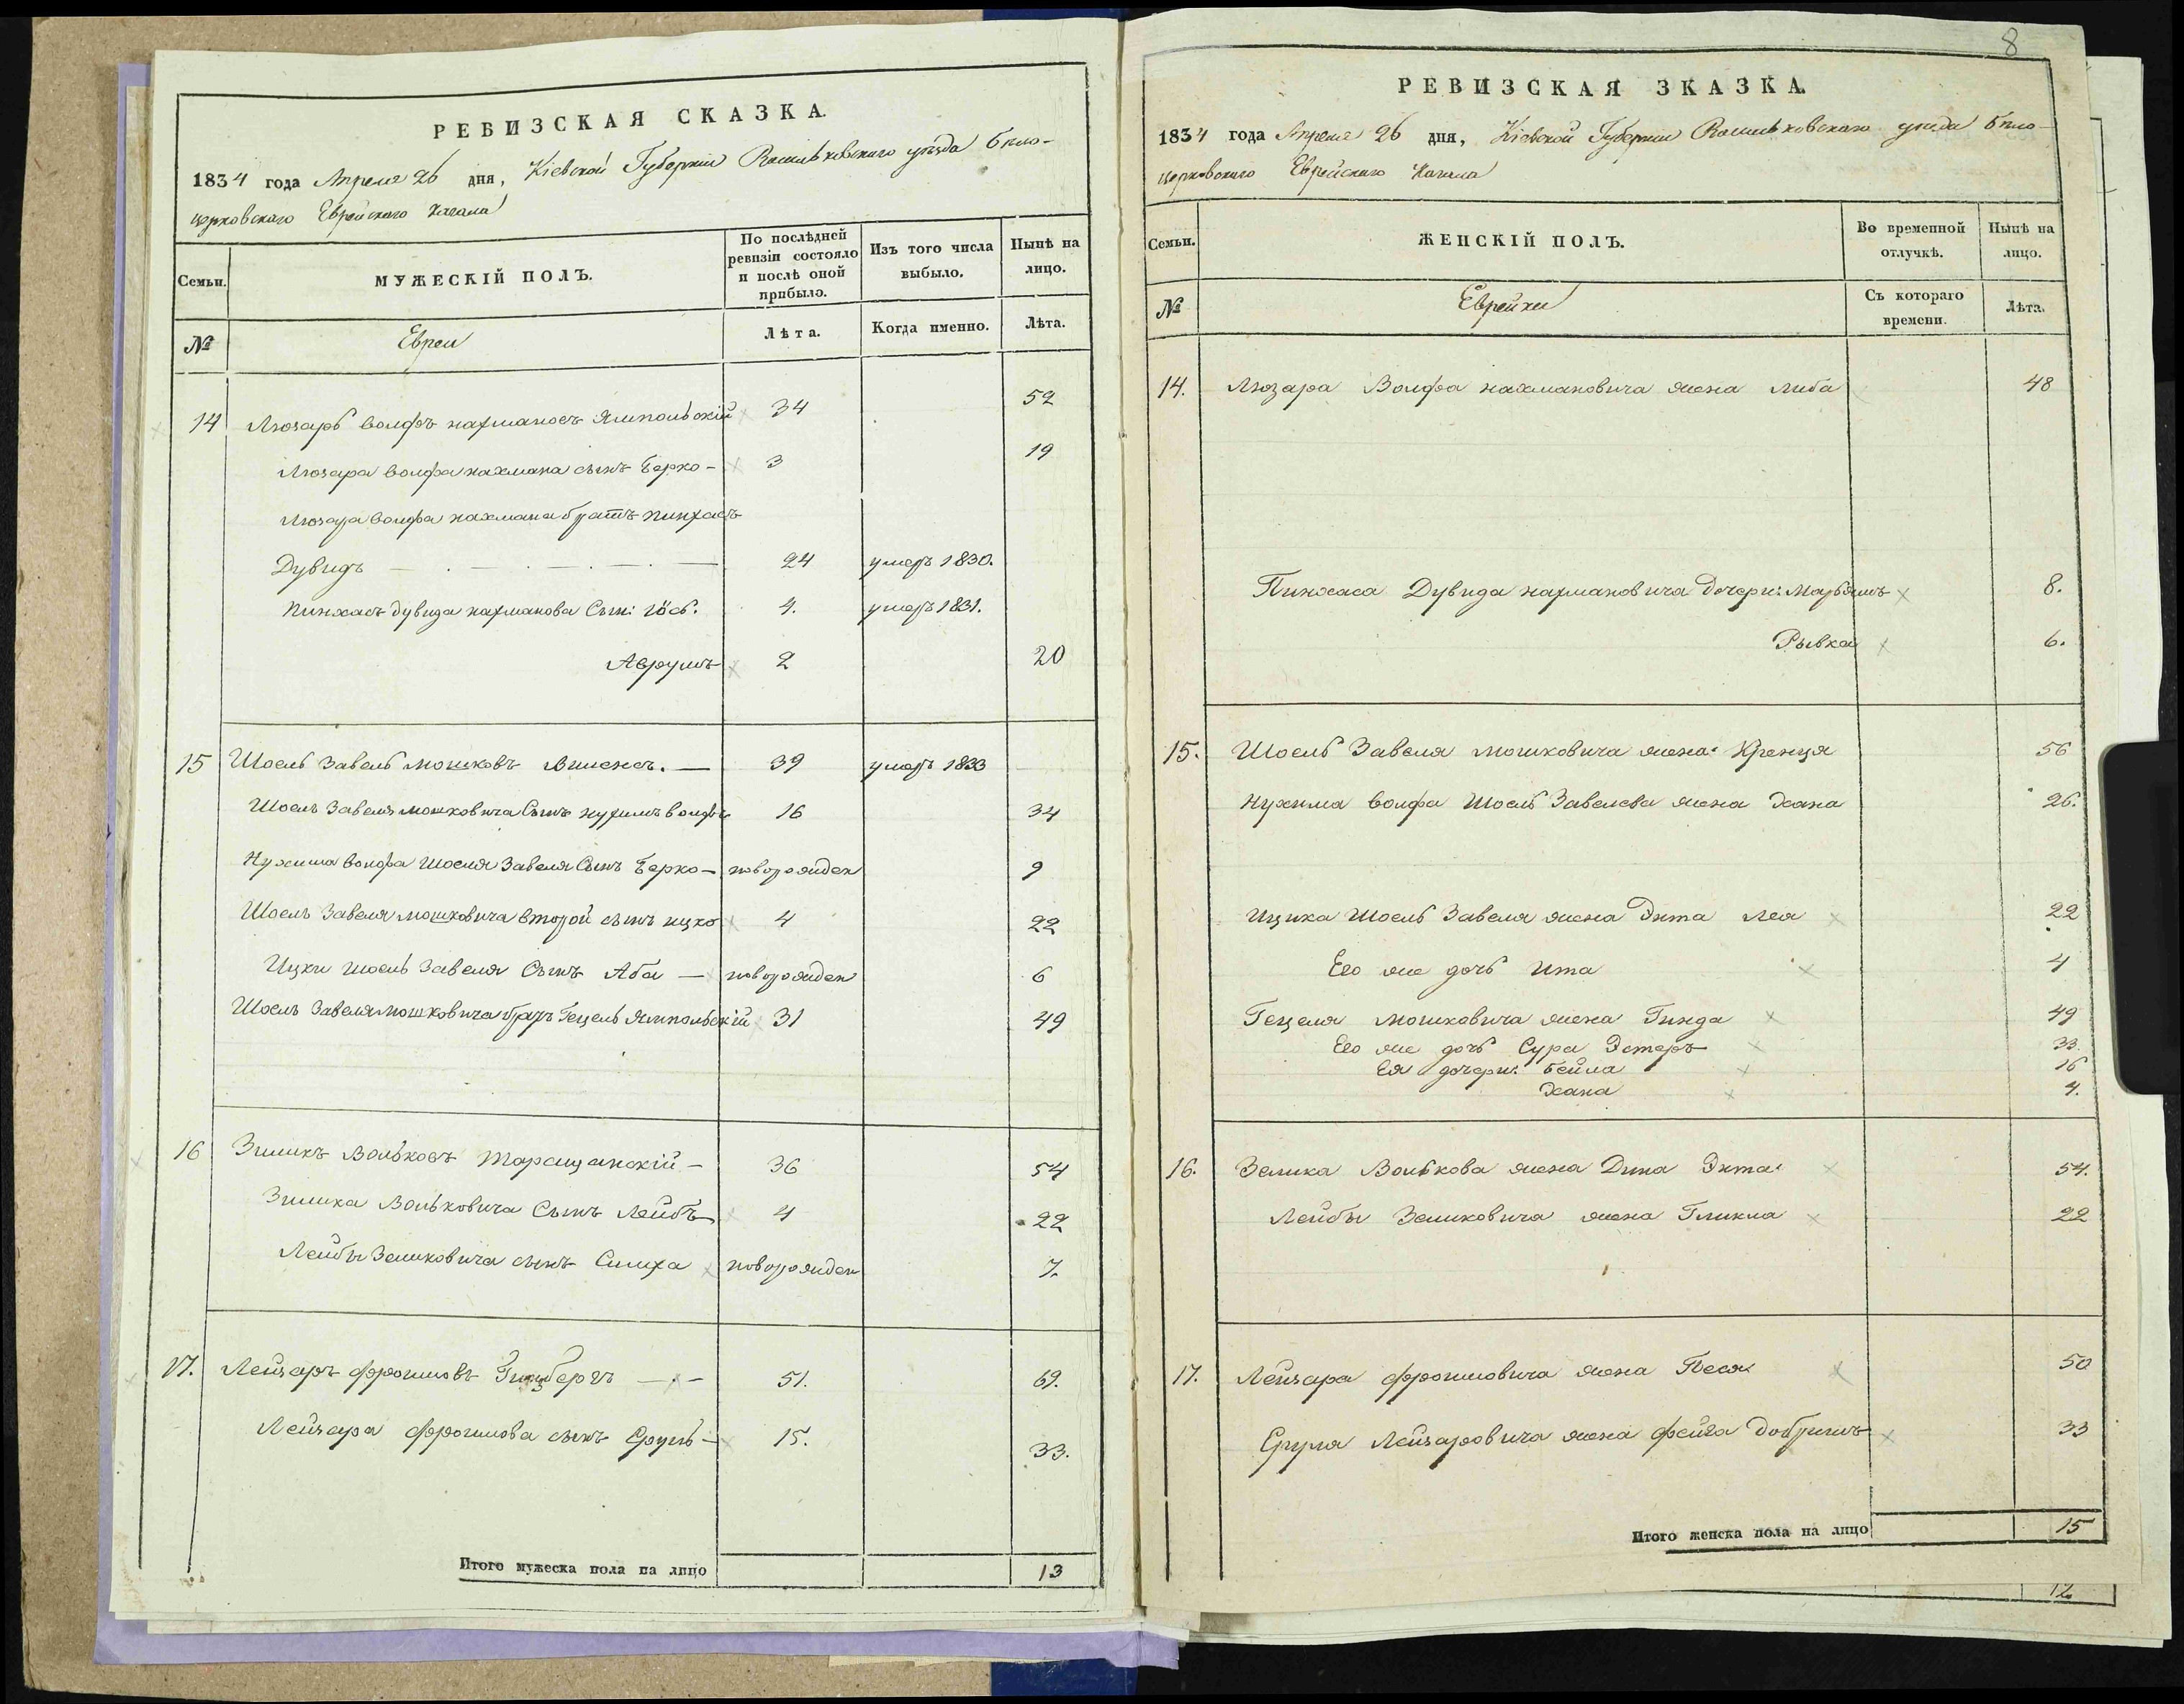 РЕВИЗСКАЯ СКАЗКА.
1834 года Апреля 26 дня, Кіевской Губерніи Васильковскаго уѣзда Бѣло-
церковскаго Еврейскаго Кагала
Семьи. МУЖЕСКІЙ ПОЛЪ. По послѣдней ревизіи состояло и послѣ оной прибыло. Изъ того числа выбыло. Нынѣ на лицо.
№ Евреи Лѣта. Когда именно. Лѣта.
14 Люзаръ Волфъ Нахмановъ Ямпольскій 34 52
Люзара Волфа Нахмана сынъ Берко - 3 19
Люзара Волфа Нахмана братъ Пинхасъ
Дувидъ 24 умеръ 1830.
Пинхасъ Дувида Нахманова Сын: Іось. 4. умеръ 1831.
Аврумъ 2 20
15 Шоель Завель Мошковъ 39 умеръ 1833
Шоель Завеля Мошковича Сынъ Нухимъ Волфъ 16 34
Нухима Волфа Шоеля Завеля Сынъ Берко - новорожден 9
Шоель Завеля Мошковича второй сынъ Ицко 4 22
Ицки Шоель Завеля Сынъ Аба - новорожден 6
Шоель Завеля Мошковича братъ Гецель Ямпольскій 31 49
16 Зиликъ Вольковъ Таращанскій - 36 54
Зилика Вольковича Сынъ Лейбъ 4 22
Лейбы Зеликовича сынъ Симха новорожден 7.
17. Лейзаръ Фроимовъ 51. 69.
Лейзара Фроимова сынъ Сруль - 15. 33.
Итого мужеска пола на лицо 13
8
РЕВИЗСКАЯ ЗКАЗКА.
1834 года Апреля 26 дня, Кіевской Губерніи Васильковскаго уѣзда Бѣло-
церковскаго Еврейскаго Кагала
Семьи. ЖЕНСКІЙ ПОЛЪ. Во временной отлучкѣ. Нынѣ на лицо.
№ Еврейки Съ котораго времени. Лѣта.
14. Люзара Волфа Нахмановича жена Либа 48
Пинхаса Дувида Нахмановича дочери: Марьямъ 8.
Рывка 6.
15. Шоель Завеля Мошковича жена Кренця 56
Нухима Волфа Шоель Завелева жена Хана 26.
Ицика Шоель Завеля жена Энта Лея 22
Его же дочь Ита 4
Гецеля Мошковича жена Гинда 49
Его же дочь Сура Эстеръ 33.
Ея дочери: Бейла 16
Хана 4.
16. Зелика Волькова жена Дина Энта 54.
Лейбы Зеликовича жена Гликла 22
17. Лейзара Фроимовича жена Песя 50
Сруля Лейзаровича жена Фейга Добришъ 33
Итого женска пола на лицо 15
12